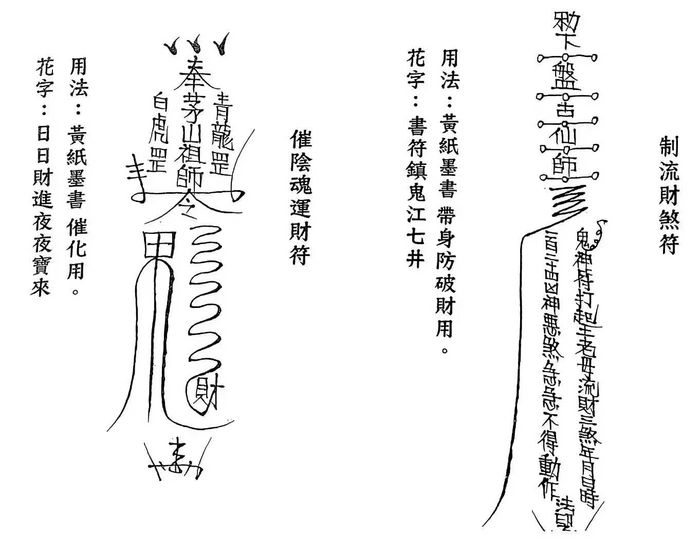 制流財煞符
勅下
盤古仙師
鬼神符打起王老母流財三煞年月日時
一百二十四凶神惡煞急急不得動作
用法：黃紙墨書 帶身防破財用。
花字：書符鎮鬼江七井
催陰魂運財符
奉茅山祖師令
青龍罡
白虎罡
財
用法：黃紙墨書 催化用。
花字：日日財進夜夜寶來